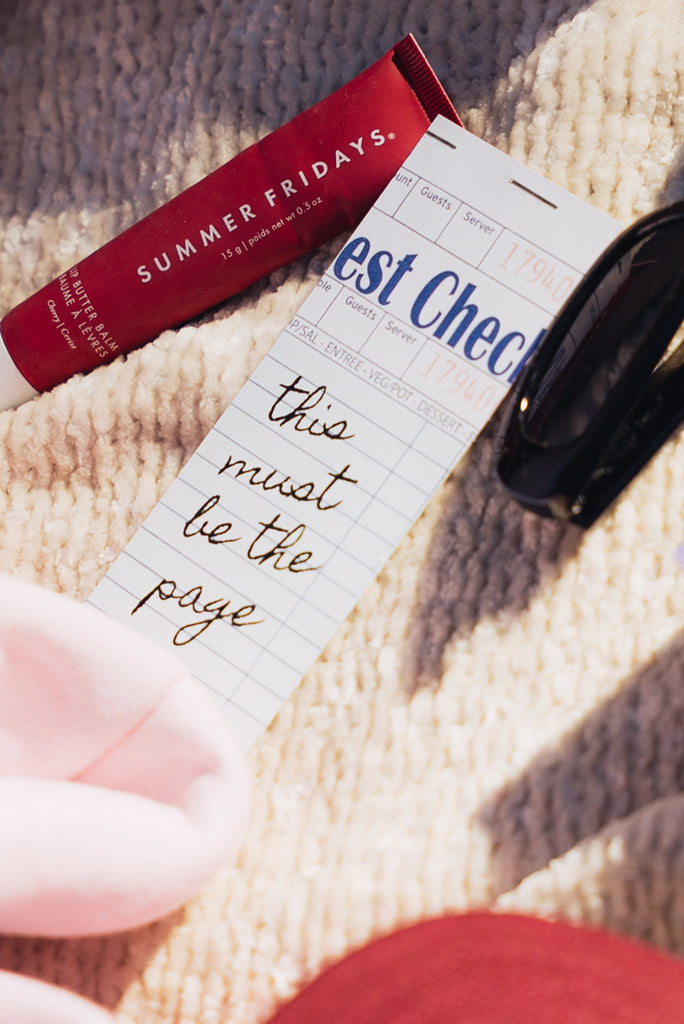 SUMMER FRIDAYS®
15 g | poids net wt 0.5 oz
LIP BUTTER BALM
BAUME À LÈVRES
Cherry | Cerise
Guests Server
17940
Guest Check
Guests Server
17940
ENTREE - VEG/POT - DESSERT -
this
must
be the
page